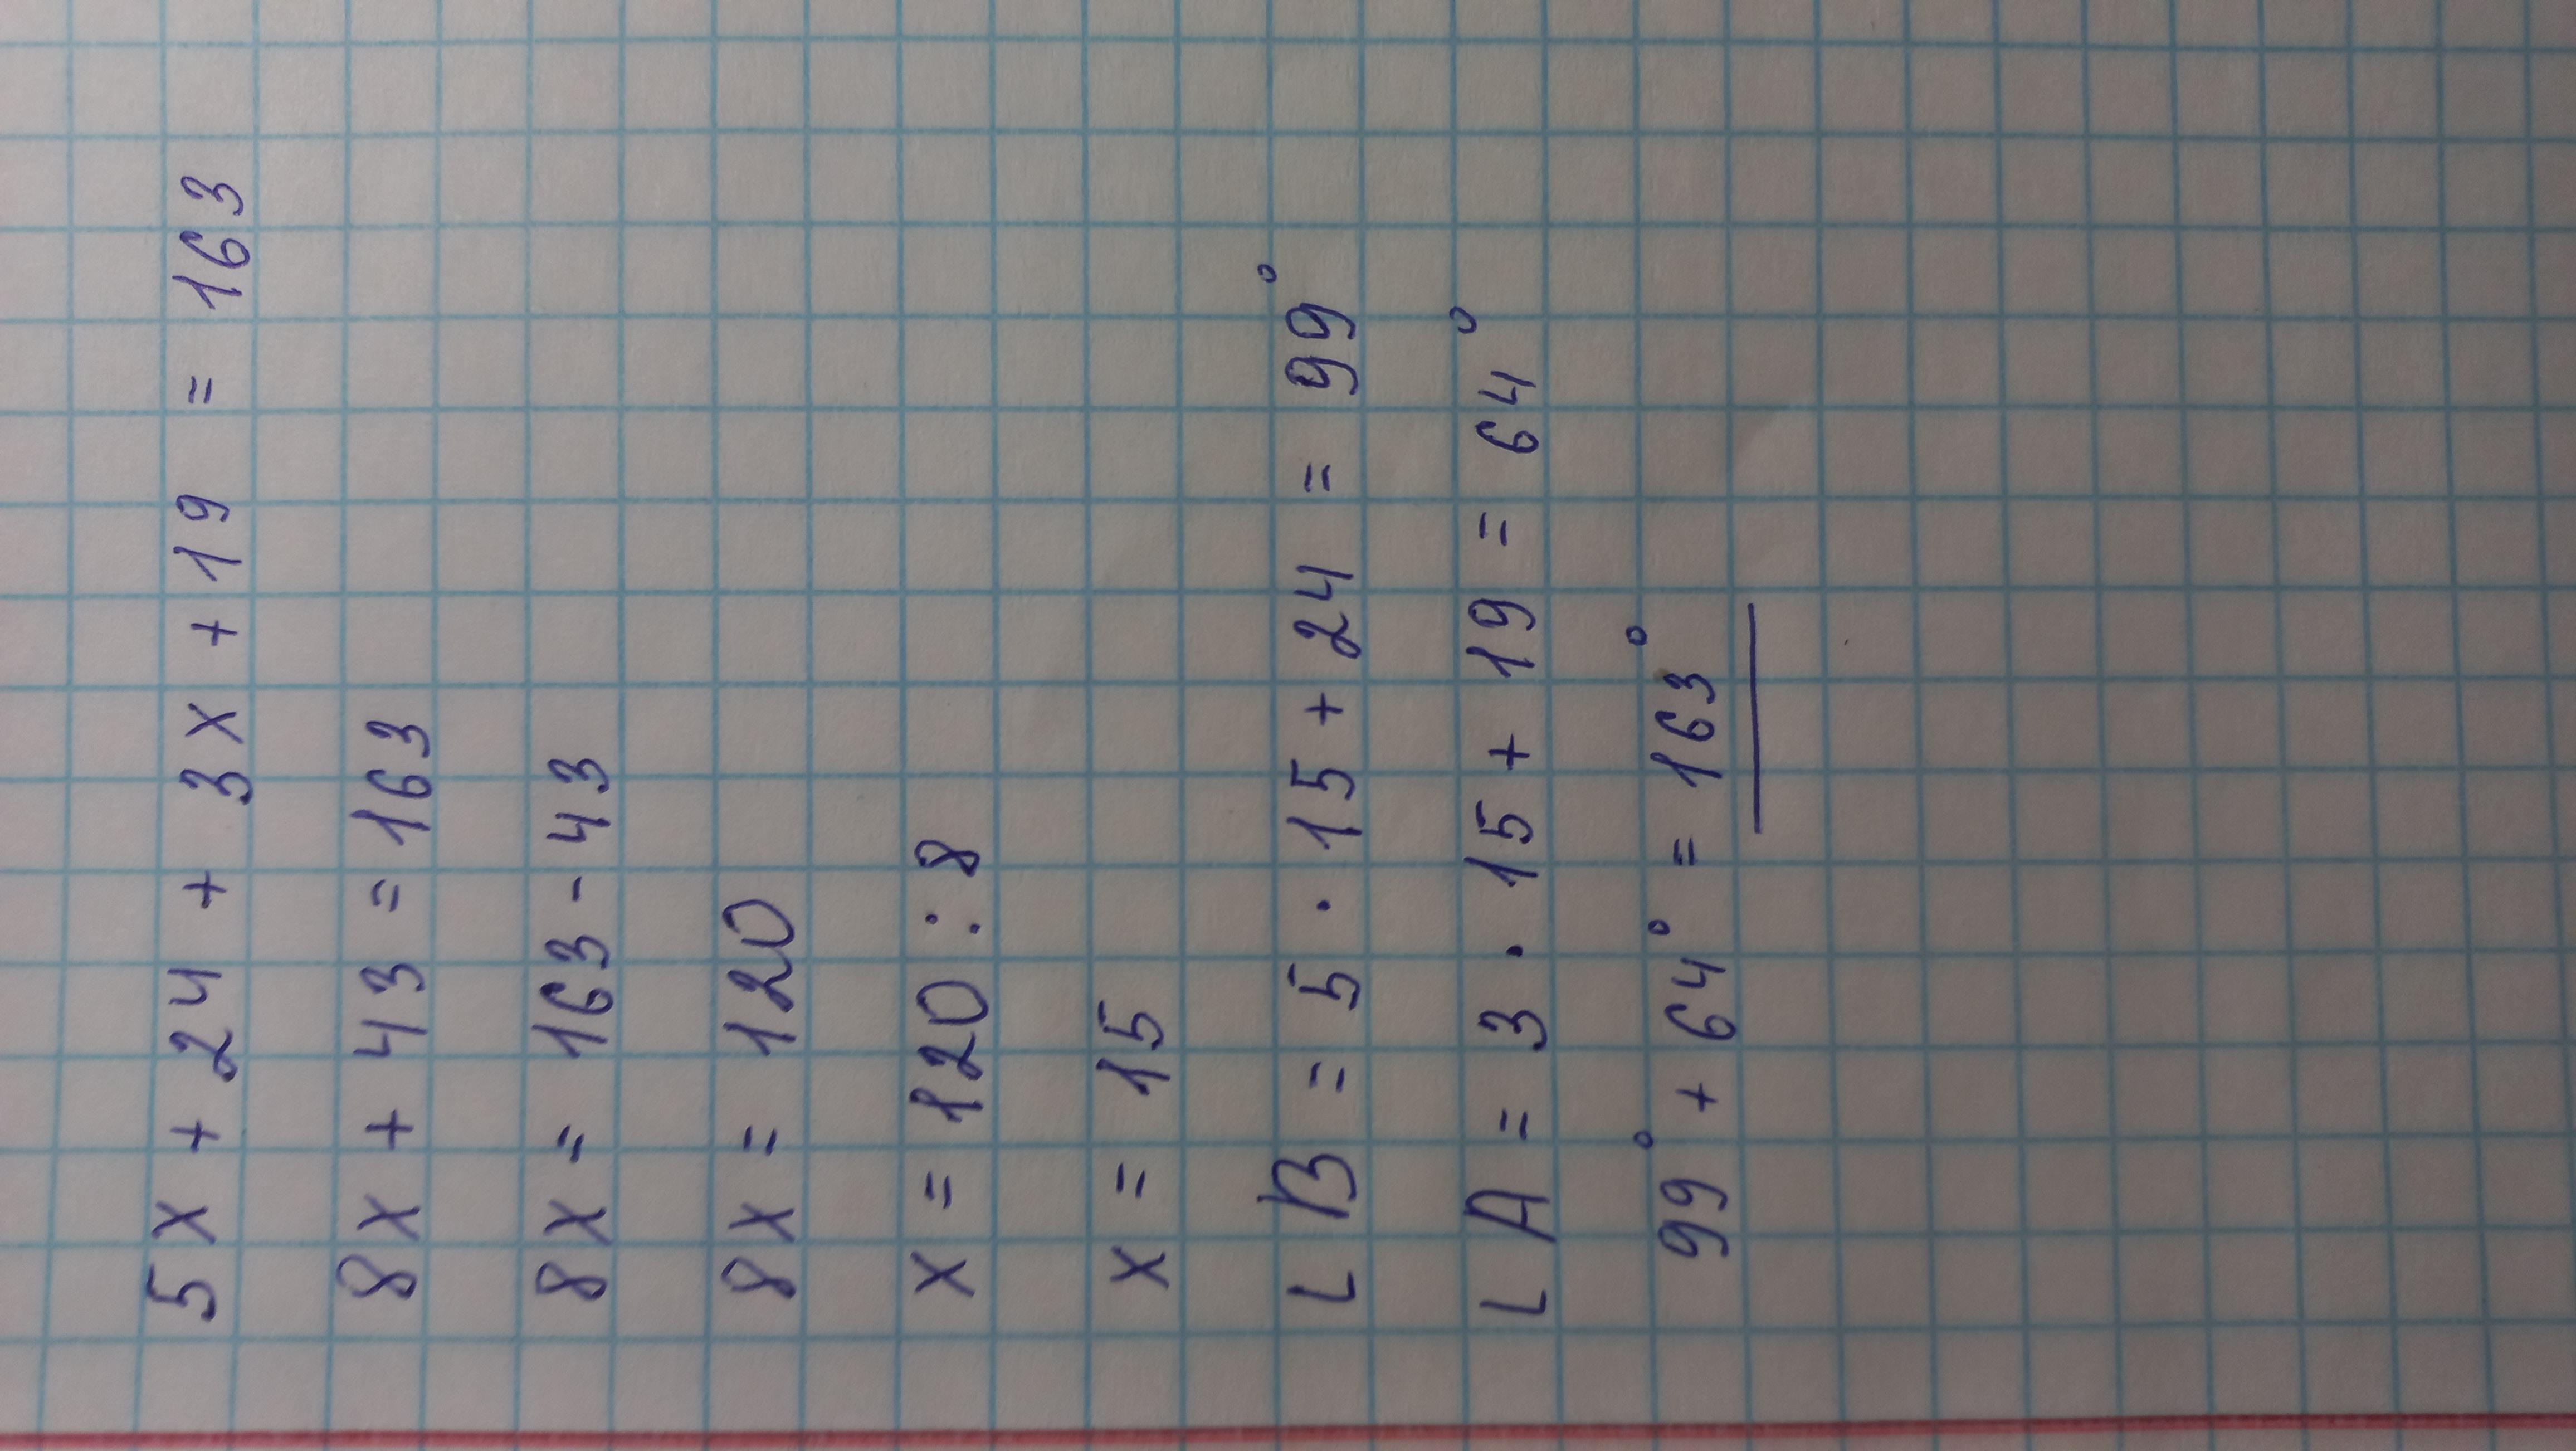 5x + 24 + 3x + 19 = 163
8x + 43 = 163
8x = 163 - 43
8x = 120
x = 120 : 8
x = 15
∠B = 5 · 15 + 24 = 99°
∠A = 3 · 15 + 19 = 64°
99° + 64° = 163°